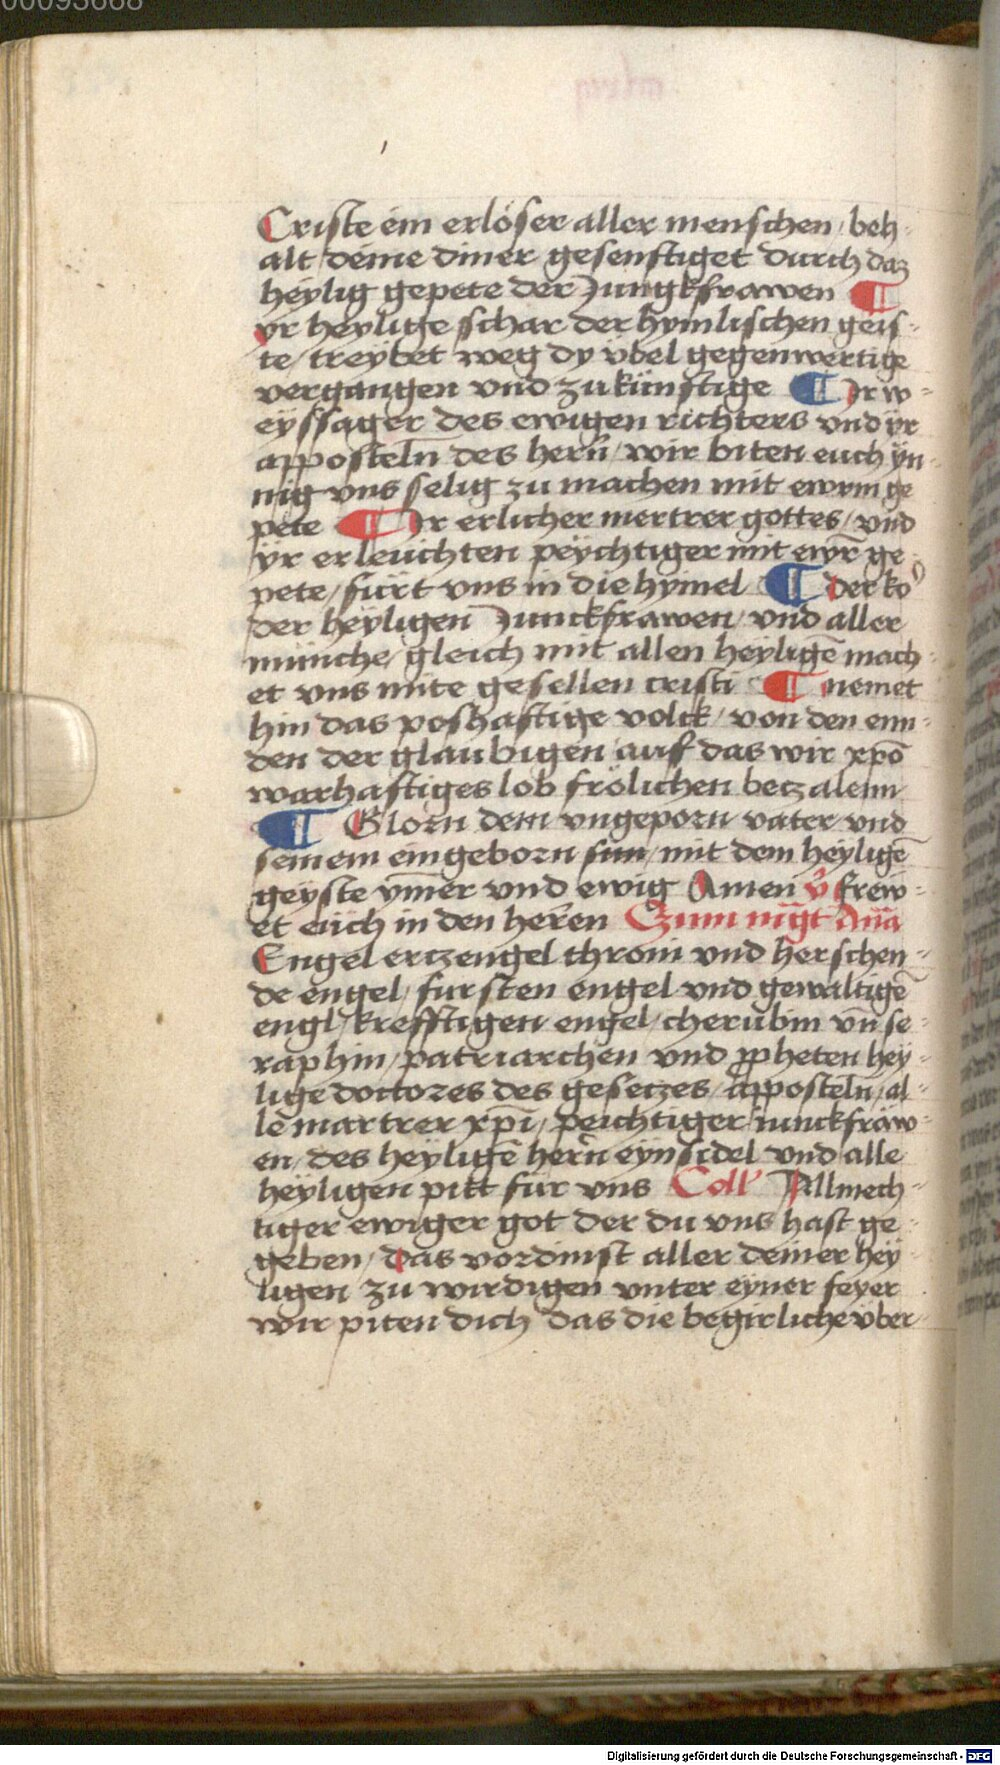 00093668
Criste ein erlöser aller menschen / beh-
alt deine diner gesenftiget durch daz
heylig gepete der Jungkfrawen ¶
yr heylige schar der hymlischen geis-
te / treybet weg dy vbel gegenwertige
vergangen vnd zukünftige ¶ Ir w-
eyssager des ewigen richters vnd yr
apposteln̄ des hern̄ / wir biten euch yn-
nig vns selig zu machen mit ewrm ge
pete ¶ Ir erlicher mertrer gottes / vnd
yr erleuchten peychtiger mit ewr̄ ge-
pete / fürt vns in die hymel ¶ der ko
der heyligen Junckfrawen / vnd aller
münche / gleich mit allen heyligē mach-
et vns mite gesellen cristi ¶ nemet
hin das poshaftige volck / von den enn-
den der glaubigen / auf das wir xp̄o
warhaftiges lob frölichen betzalenn
¶ Glori dem vngeporn vater vnd
seinem eingeborn sun / mit dem heyligē
geyste ym̄er vnd ewig Amen v̊ frew-
et euch in den herren Czum mḡt Ana
Engel ertzengel throni vnd herschen-
de engel / fursten engel vnd gewaltigē
engl / krefftigen engel / cherubin vn̄ se-
raphin / patriarchen vnd ꝓpheten hey-
lige doctores des gesetzes / apposteln̄ / al-
le martrer xp̄i / peichtiger iunckfraw-
en / des heyligē hern̄ eynsidel vnd alle
heyligen pitt fur vns Coll' Allmech-
tiger ewiger got der du vns hast ge-
geben / das vordinst aller deiner hey
ligen zu wirdigen vnter eyner feyer
wir piten dich das die begirliche vber-
Digitalisierung gefördert durch die Deutsche Forschungsgemeinschaft - DFG